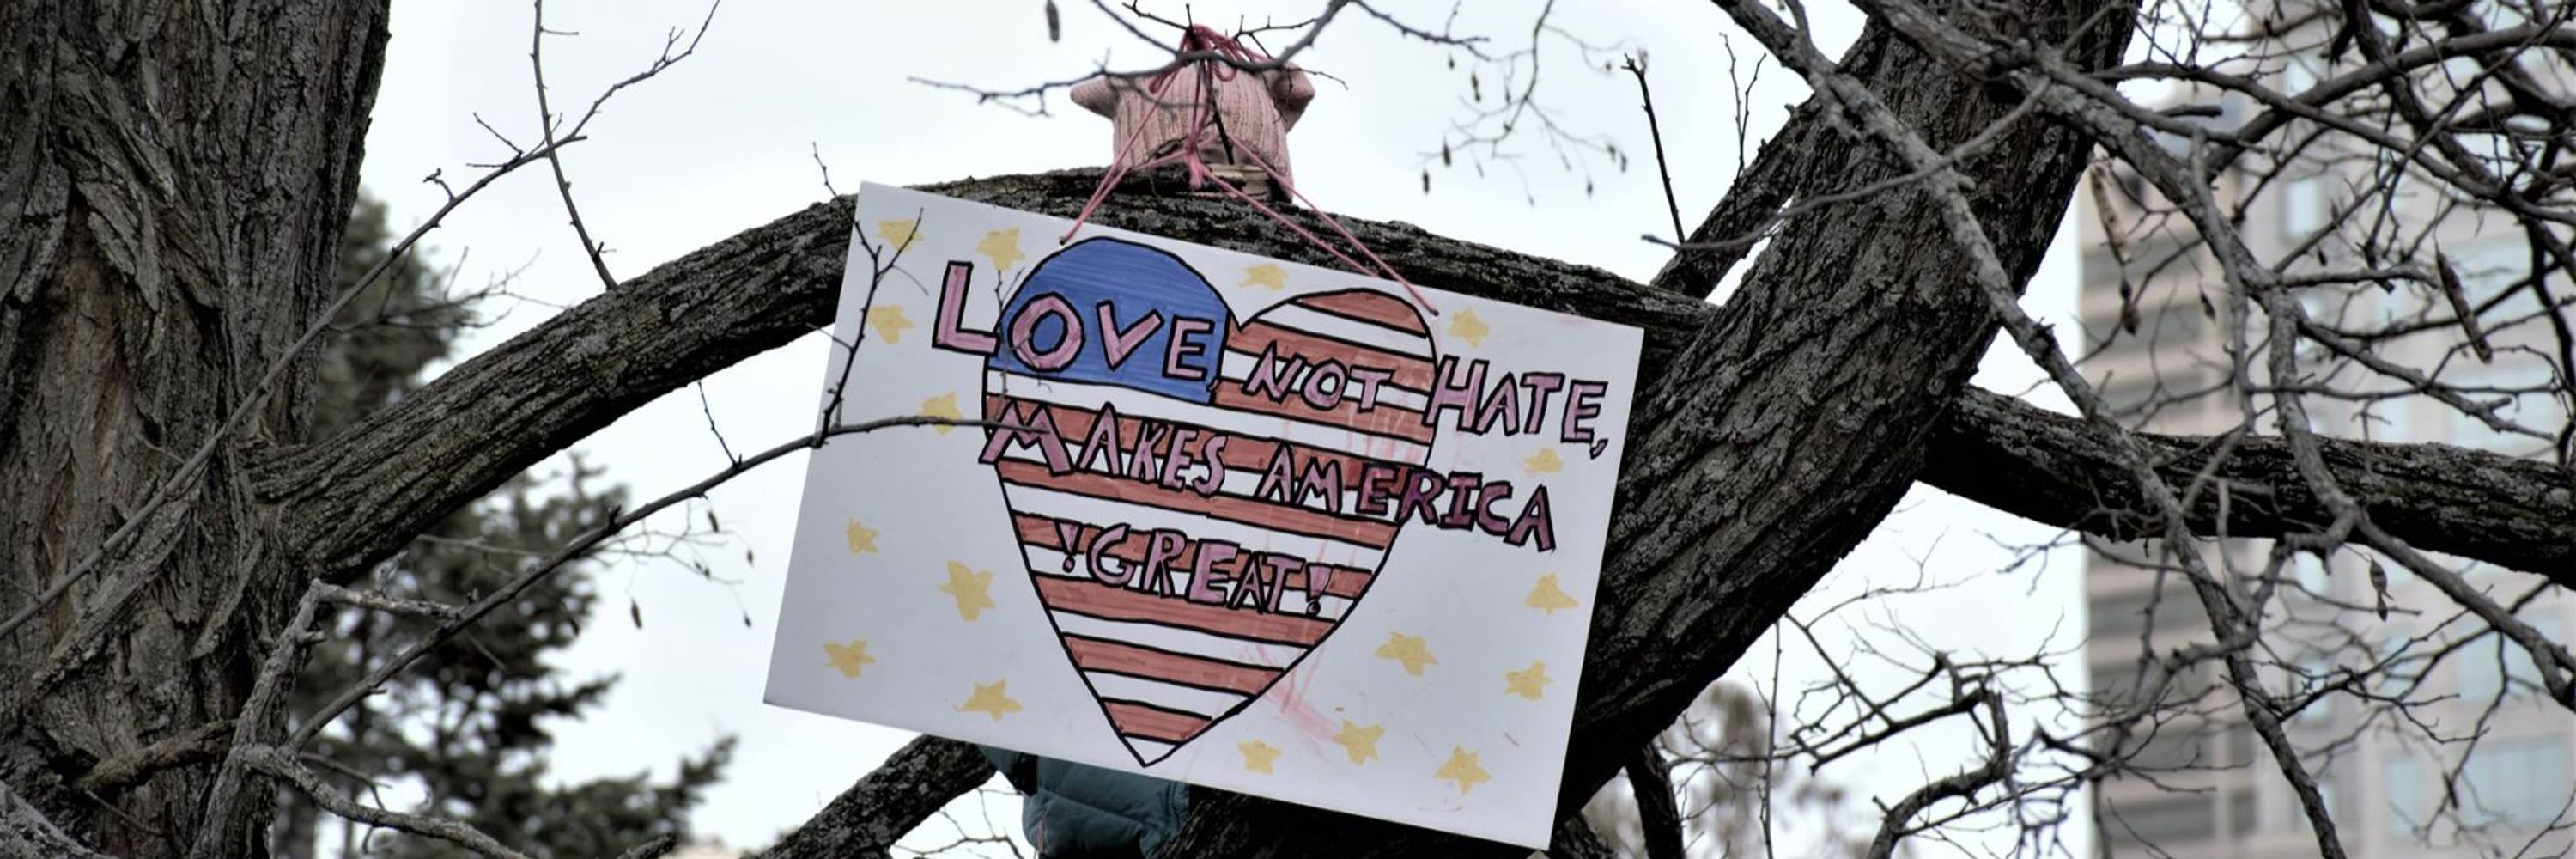 LOVE, NOT HATE,
MAKES AMERICA
!GREAT!